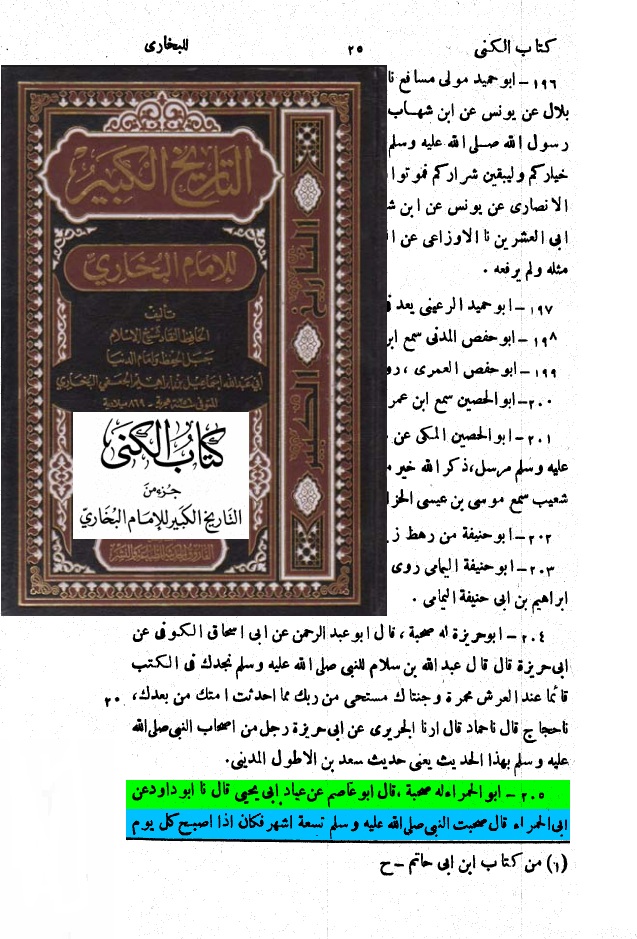 كتاب الكنى ٢٥ للبخارى
١٩٦ - ابو حميد مولى مسافع نا
بلال عن يونس عن ابن شهاب
رسول الله صلى الله عليه وسلم
خياركم وليبقين شراركم فموتوا
الانصارى عن يونس عن ابن
ابى العشرين نا الاوزاعى عن
مثله ولم يرفعه .
١٩٧ - ابو حميد الرعينى يعد
١٩٨ - ابو حفص المدنى سمع
١٩٩ - ابو حفص العمرى ،
٢٠٠ - ابو الحصين سمع ابن عمر
٢٠١ - ابو الحصين المكى عن
عليه وسلم مرسل، ذكر الله خير
شعيب سمع موسى بن عيسى
٢٠٢ - ابو حنيفة من رهط
٢٠٣ - ابو حنيفة اليمامى روى
ابراهيم بن ابى حنيفة اليمامى .
٢٠٤ - ابو حريزة له صحبة ، قال ابو عبد الرحمن عن ابى اسحاق الكوفى عن
ابى حريزة قال قال عبد الله بن سلام للنبى صلى الله عليه وسلم نجدك فى الكتب
قائما عند العرش محمرة وجنتاك مستحى من ربك مما احدثت امتك من بعدك، ٢٠
نا حجاج قال نا حماد قال ارنا الجريرى عن ابى حريزة رجل من اصحاب النبى صلى الله
عليه وسلم بهذا الحديث يعنى حديث سعد بن الاطول المدينى.
٢٠٥ - ابو الحمراء له صحبة ، قال ابو عاصم عن عباد ابى يحيى قال نا ابو داود عن
ابى الحمراء قال صحبت النبى صلى الله عليه وسلم تسعة اشهر فكان اذا اصبح كل يوم
(١) من كتاب ابن ابى حاتم - ح
التاريخ الكبير
للإمام البخاري
تأليف
الحافظ النقاد شيخ الإسلام
جبل الحفظ وإمام الدنيا
أبي عبد الله إسماعيل بن إبراهيم الجعفي البخاري
المتوفى سنة هجرية - ٨٦٩ ميلادية
كتاب الكنى
جزء من
التاريخ الكبير للإمام البخاري
التاريخ الكبير